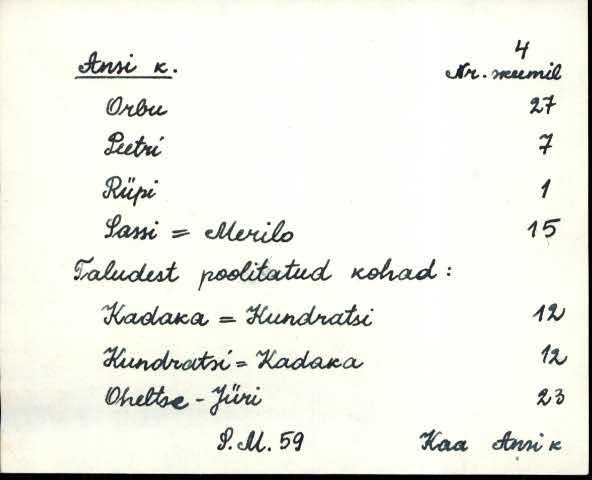 4
Ansi k. Nr. skeemil
Orbu 27
Peetri 7
Rüpi 1
Sassi = Merilo 15
Taludest poolitatud kohad :
Kadaka = Kundratsi 12
Kundratsi = Kadaka 12
Oheltse - Jüri 23
S. M. 59 Kaa Ansi k